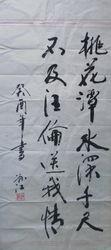 桃花潭水深千尺
不及汪倫送我情
癸酉年書